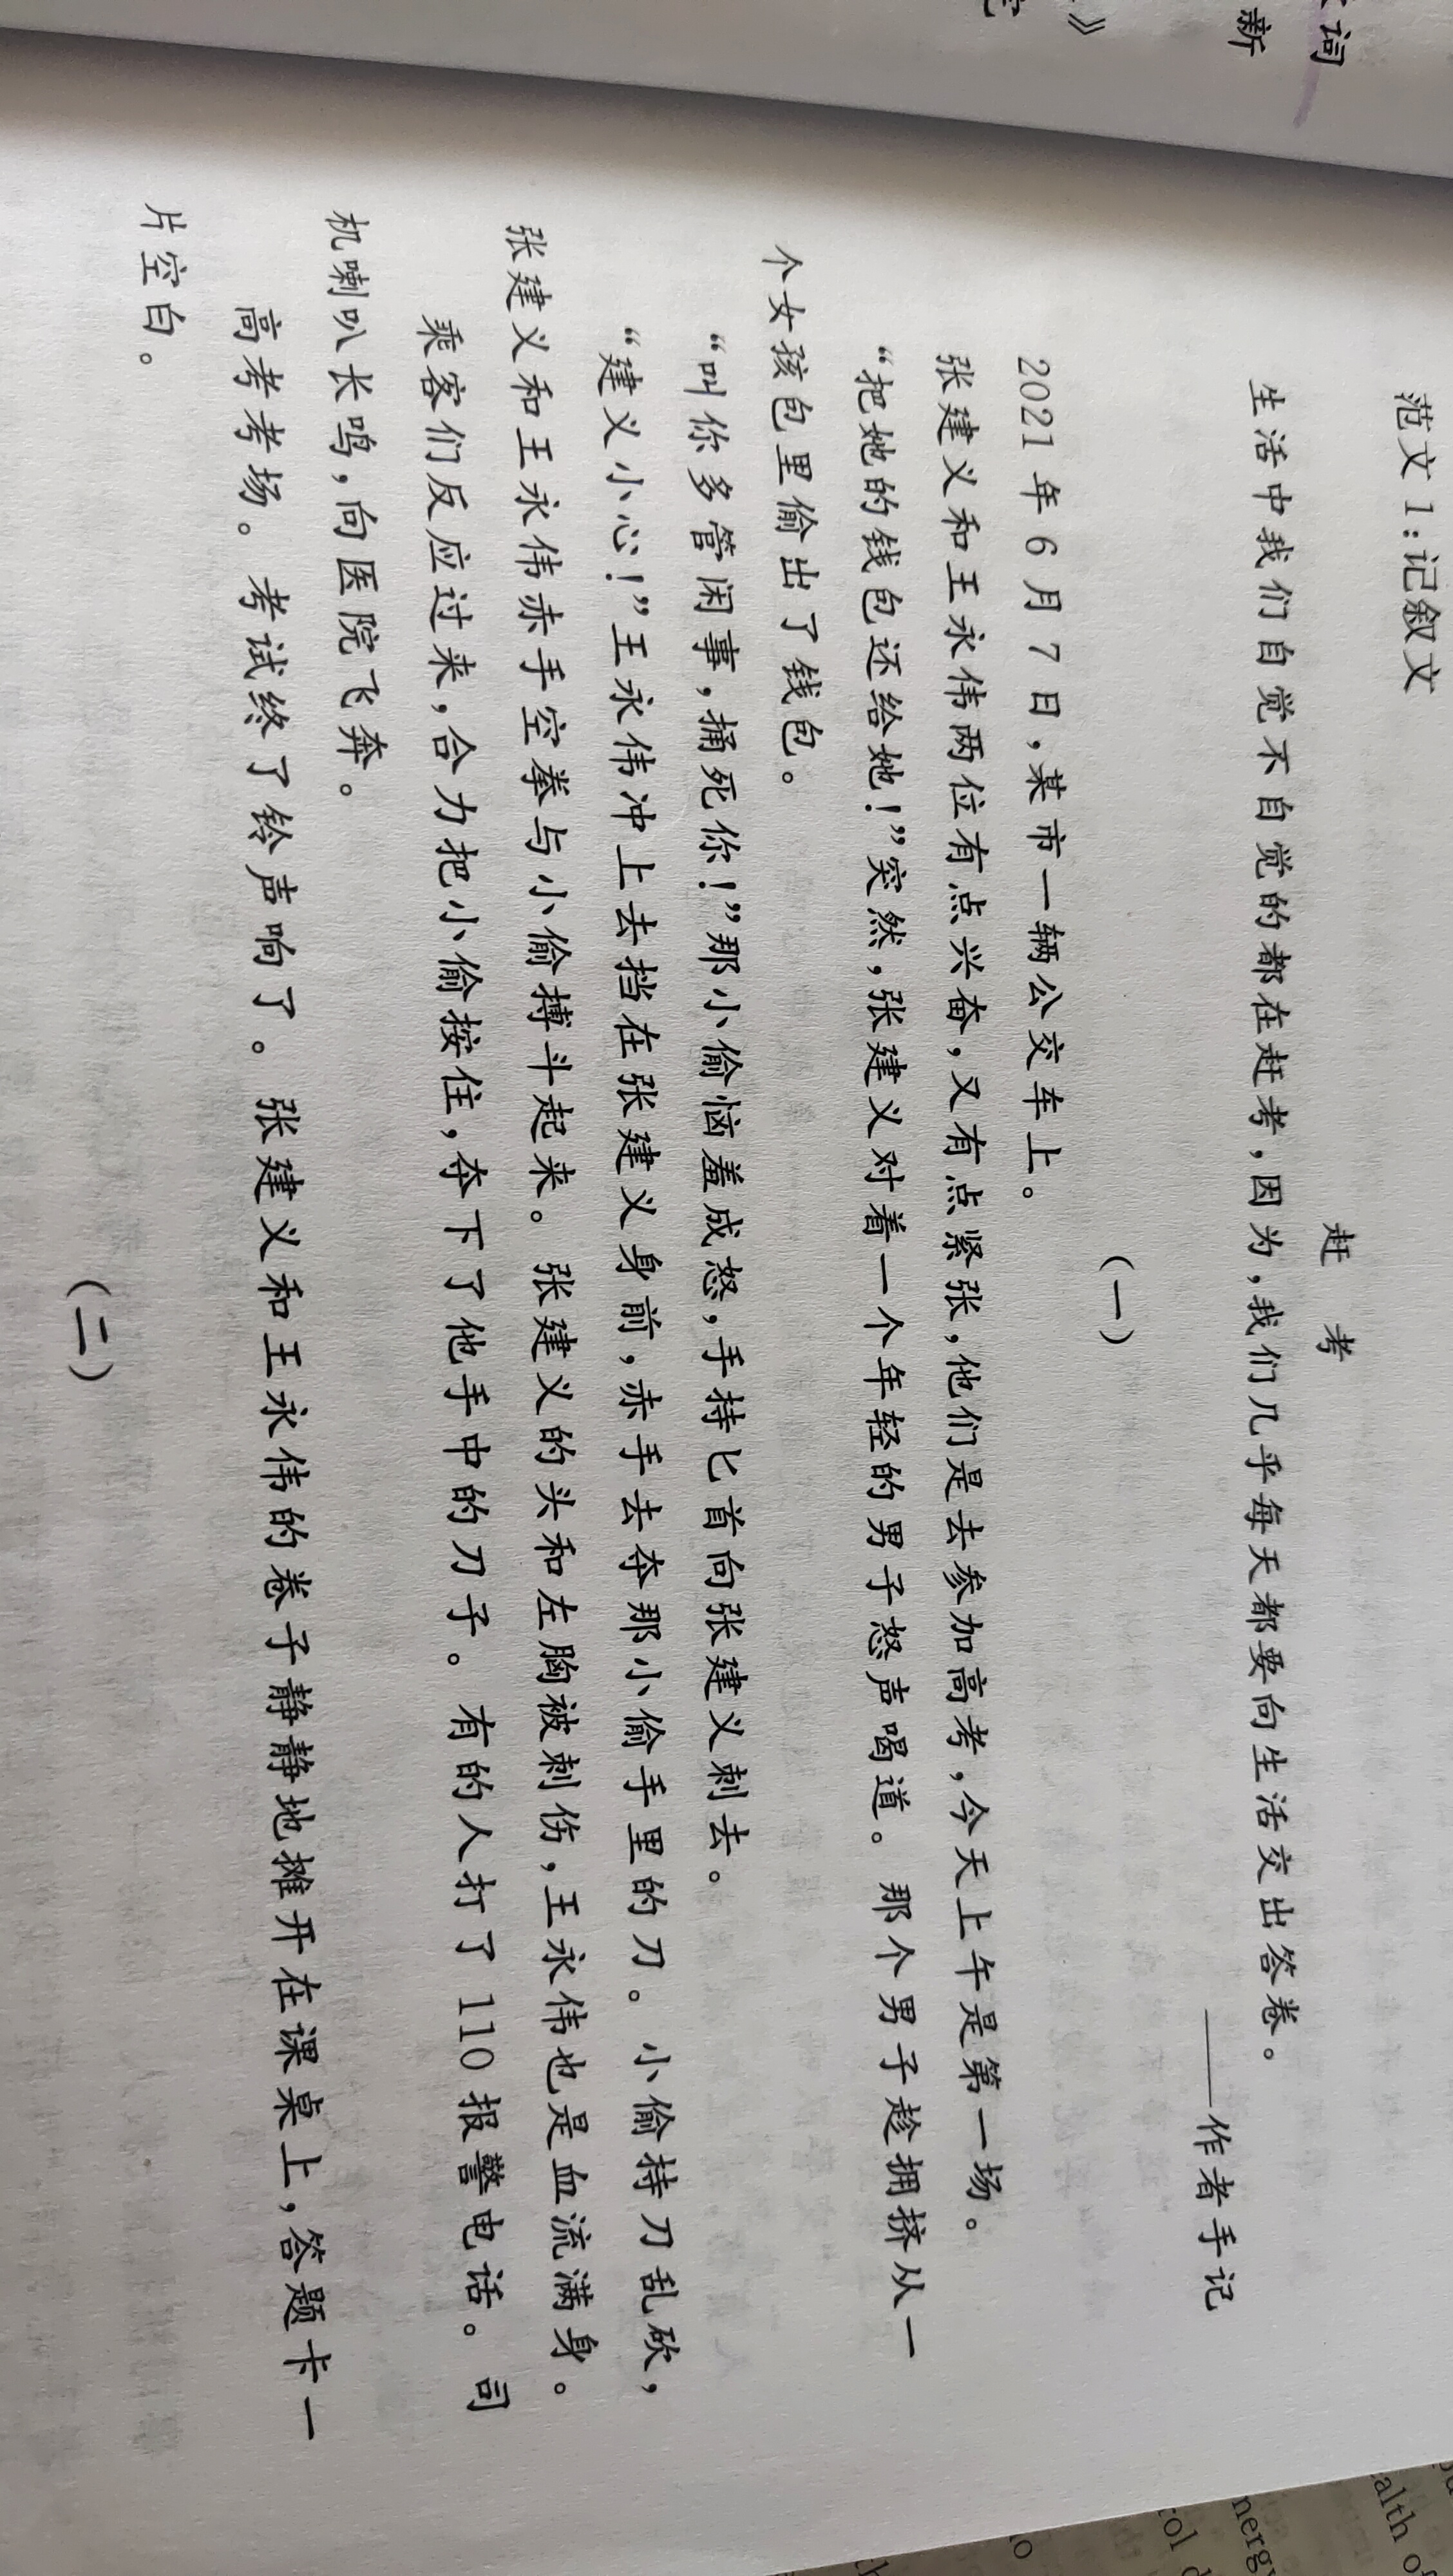 范文1:记叙文
赶 考
生活中我们自觉不自觉的都在赶考,因为,我们几乎每天都要向生活交出答卷。
——作者手记
(一)
2021年6月7日,某市一辆公交车上。
张建义和王永伟两位有点兴奋,又有点紧张,他们是去参加高考,今天上午是第一场。
“把她的钱包还给她!”突然,张建义对着一个年轻的男子怒声喝道。那个男子趁拥挤从一
个女孩包里偷出了钱包。
“叫你多管闲事,捅死你!”那小偷恼羞成怒,手持匕首向张建义刺去。
“建义小心!”王永伟冲上去挡在张建义身前,赤手去夺那小偷手里的刀。小偷持刀乱砍,
张建义和王永伟赤手空拳与小偷搏斗起来。张建义的头和左胸被刺伤,王永伟也是血流满身。
乘客们反应过来,合力把小偷按住,夺下了他手中的刀子。有的人打了110报警电话。司
机喇叭长鸣,向医院飞奔。
高考考场。考试终了铃声响了。张建义和王永伟的卷子静静地摊开在课桌上,答题卡一
片空白。
(二)
词
新
》
alth of
nergy
rol d